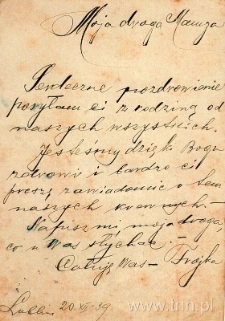 Moja droga Maniza
Serdeczne pozdrowienie
posyłam ci z rodziną od
naszych wszystkich.
Jesteśmy dzięki Bogu
zdrowi i bardzo cię
proszę zawiadomić o tem
naszych krewnych.
Napisz mi moja droga
co u Was słychać.
Całuję Was - Frójka
Lublin 20.XI.39
www.tnn.pl